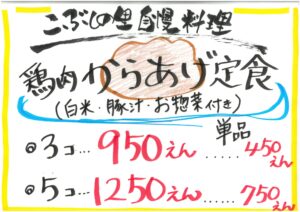 こぶしの里自慢料理
鶏肉からあげ定食
(白米・豚汁・お惣菜付き)
単品
◎3コ…950えん……450えん
◎5コ…1250えん……750えん